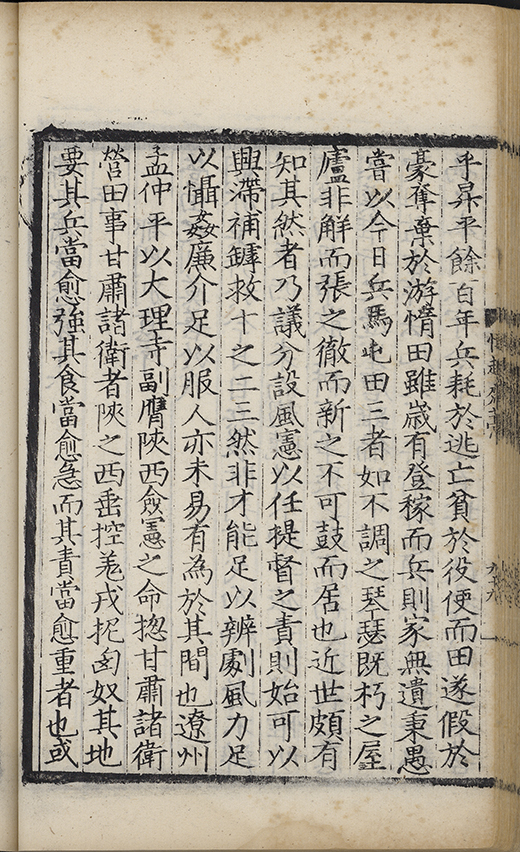 乎昇平餘百年兵耗於逃亡貧於役使而田遂假於
豪奪棄於游惰田雖歲有登稼而兵則家無遺秉愚
嘗以今日兵馬屯田三者如不調之琴瑟既朽之屋
廬非解而張之徹而新之不可鼓而居也近世頗有
知其然者乃議分設風憲以任提督之責則始可以
興滯補罅救十之二三然非才能足以辨劇風力足
以懾姦廉介足以服人亦未易有為於其間也遼州
孟仲平以大理寺副膺陝西僉憲之命揔甘肅諸衛
營田事甘肅諸衛者陝之西垂控羌戎扼匈奴其地
要其兵當愈強其食當愈急而其責當愈重者也或